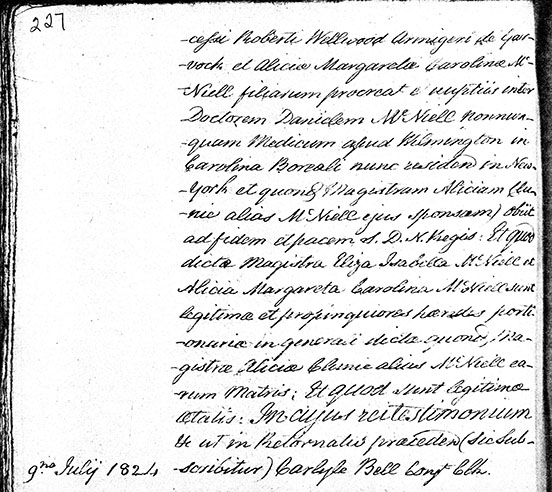 227
-cessi Roberti Wellwood Armigeri de Gar-
-voch et Alicia Margareta Carolina Mc
-Niell filiarum procreat é nuptiis inter
Doctorem Danielem Mc Niell nonnun-
-quam Medicum apud Wilmington in
Carolina Boreali nunc residen in New-
-York et quond Magistram Aliciam (Clu-
-nie alias Mc Niell ejus sponsam) obiit
ad fidem et pacem S. D. N. Regis: Et quod
dictæ Magistra Eliza Isabella Mc Niell et
Alicia Margareta Carolina Mc Niell sunt
legitimæ et propinquiores hæredes porti-
-onariæ in generali dictæ quond Ma-
-gistræ Aliciæ Clunie alias Mc Niell ea-
-rum Matris: Et quod sunt legitimæ
ætatis: In cujus rei testimonium
& ut in Retornatis præceden (Sic Sub-
9no Julij 1824 -scribitur) Carlyle Bell